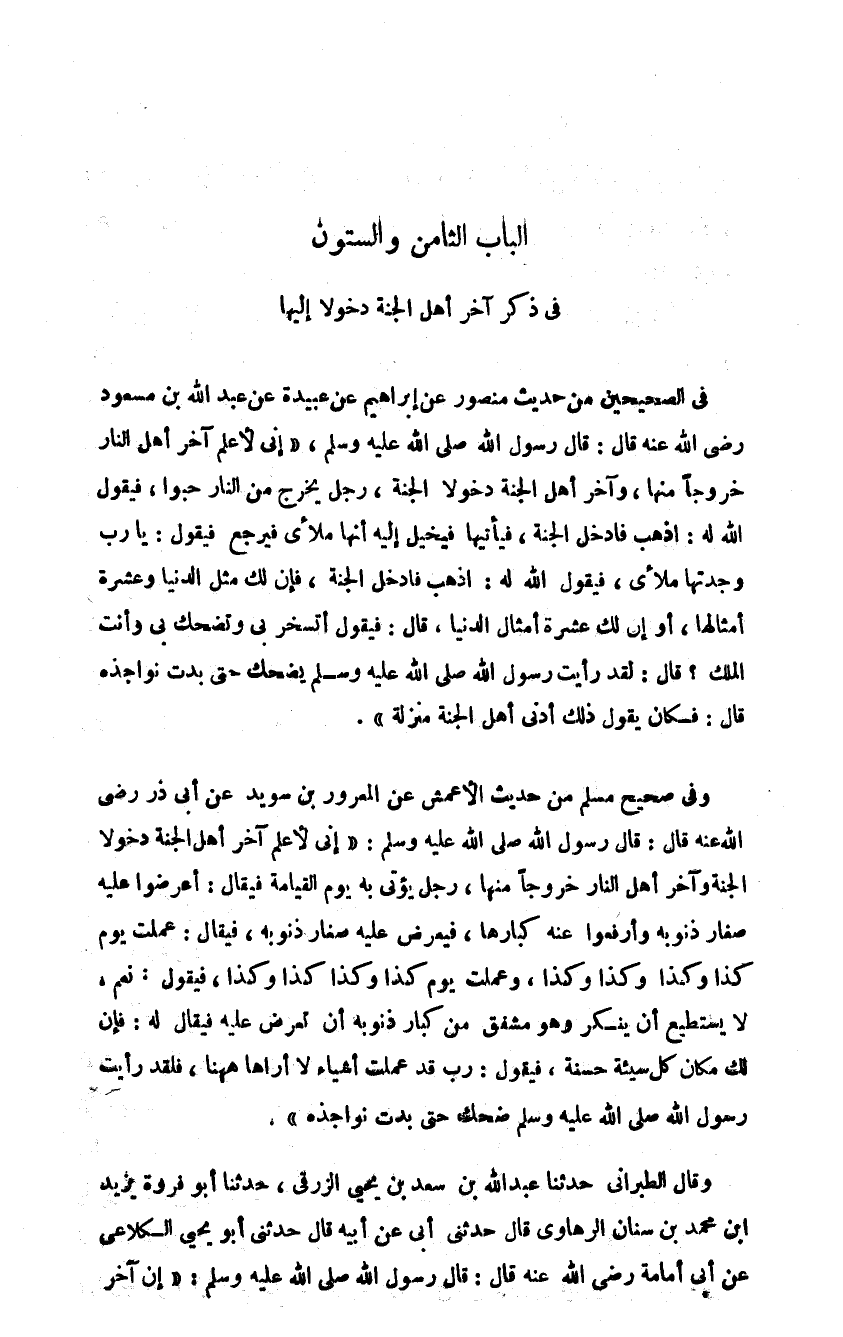 الباب الثامن والستون
فى ذكر آخر أهل الجنة دخولا إليها
فى الصحيحين من حديث منصور عن إبراهيم عن عبيدة عن عبد الله بن مسعود
رضى الله عنه قال : قال رسول الله صلى الله عليه وسلم ، « إنى لأعلم آخر أهل النار
خروجاً منها ، وآخر أهل الجنة دخولا الجنة ، رجل يخرج من النار حبوا ، فيقول
الله له : اذهب فادخل الجنة ، فيأتيها فيخيل إليه أنها ملأى فيرجع فيقول : يا رب
وجدتها ملأى ، فيقول الله له : اذهب فادخل الجنة ، فإن لك مثل الدنيا وعشرة
أمثالها ، أو إن لك عشرة أمثال الدنيا ، قال : فيقول أتسخر بى وتضحك بى وأنت
الملك ؟ قال : لقد رأيت رسول الله صلى الله عليه وسلم يضحك حتى بدت نواجذه
قال : فكان يقول ذلك أدنى أهل الجنة منزلة » .
وفى صحيح مسلم من حديث الأعمش عن المعرور بن سويد عن أبى ذر رضى
الله عنه قال : قال رسول الله صلى الله عليه وسلم : « إنى لأعلم آخر أهل الجنة دخولا
الجنة وآخر أهل النار خروجاً منها ، رجل يؤتى به يوم القيامة فيقال : أعرضوا عليه
صغار ذنوبه وأرفعوا عنه كبارها ، فيعرض عليه صغار ذنوبه ، فيقال : عملت يوم
كذا وكذا وكذا وكذا ، وعملت يوم كذا وكذا كذا وكذا ، فيقول : نعم ،
لا يستطيع أن ينكر وهو مشفق من كبار ذنوبه أن تعرض عليه فيقال له : فإن
لك مكان كل سيئة حسنة ، فيقول : رب قد عملت أشياء لا أراها ههنا ، فلقد رأيت
رسول الله صلى الله عليه وسلم ضحك حتى بدت نواجذه » .
وقال الطبرانى حدثنا عبدالله بن سعد بن يحيى الزرقى ، حدثنا أبو فروة يزيد
ابن محمد بن سنان الرهاوى قال حدثنى أبى عن أبيه قال حدثنى أبو يحيى الكلاعى
عن أبى أمامة رضى الله عنه قال : قال رسول الله صلى الله عليه وسلم : « إن آخر